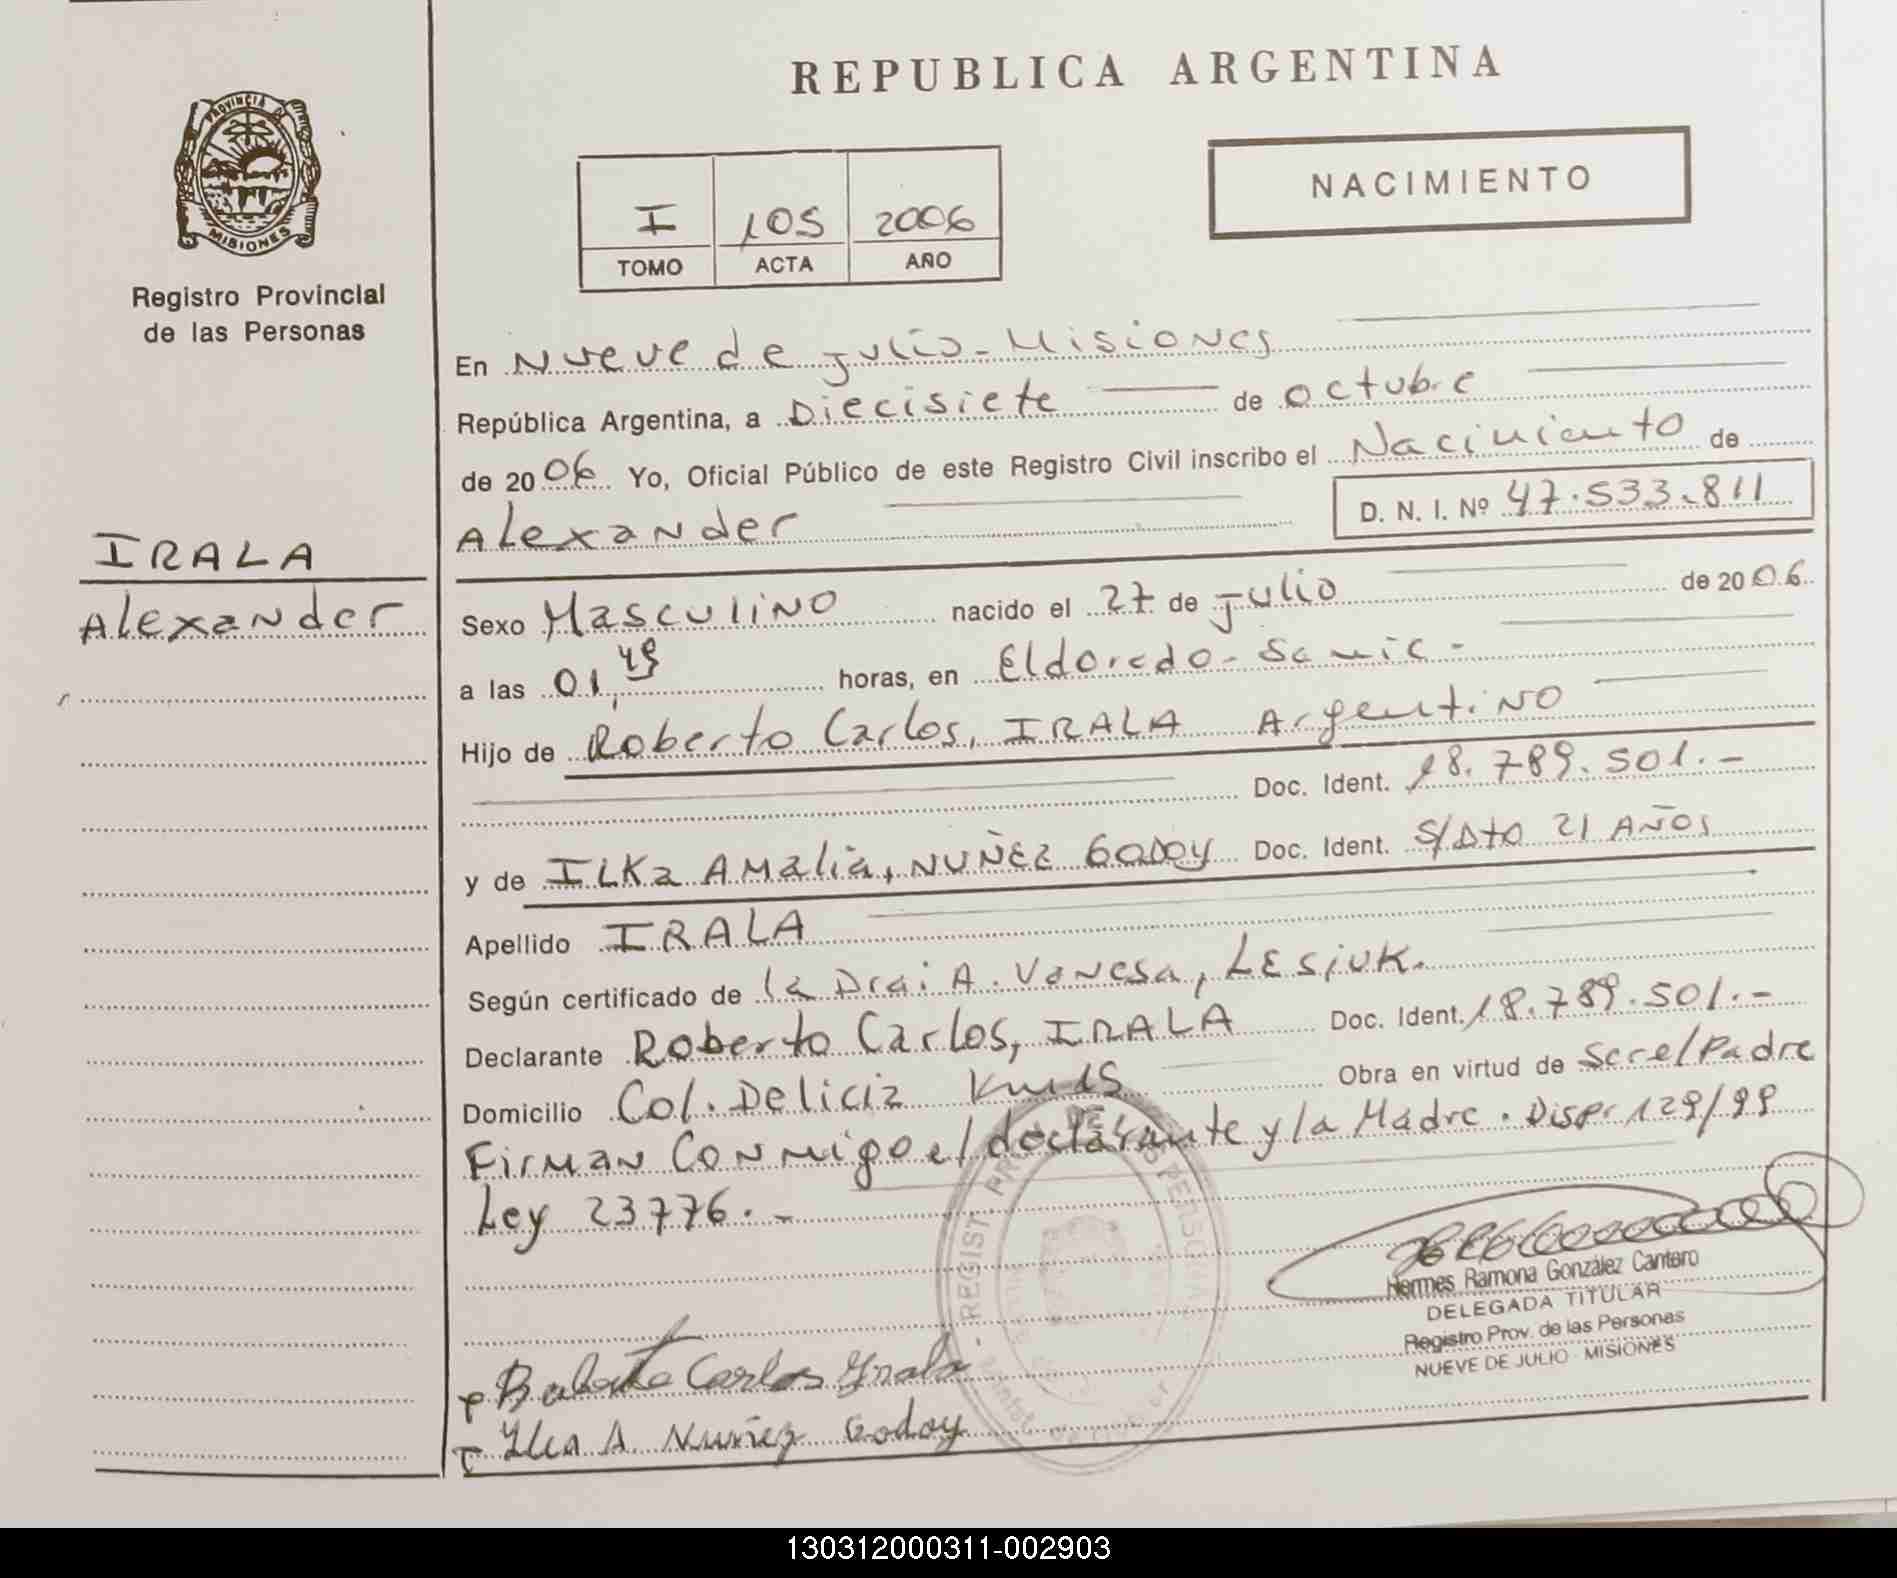 REPUBLICA ARGENTINA
PROVINCIA DE
MISIONES
Registro Provincial
de las Personas
NACIMIENTO
I 105 2006
TOMO ACTA AÑO
IRALA
Alexander
En Nueve de Julio - Misiones
República Argentina, a Diecisiete de octubre
de 2006 Yo, Oficial Público de este Registro Civil inscribo el Nacimiento de
Alexander D. N. I. Nº 47.533.811
Sexo Masculino nacido el 27 de Julio de 2006
a las 01,45 horas, en Eldorado - Samic -
Hijo de Roberto Carlos, IRALA Argentino
Doc. Ident. 18.789.501.-
y de ILKa AMalia, NUÑEZ GODOY Doc. Ident. S/Dto 21 AÑOS
Apellido IRALA
Según certificado de la Dra: A. Vanesa, LESiuK.
Declarante Roberto Carlos, IRALA Doc. Ident. 18.789.501.-
Domicilio Col. Delicia Obra en virtud de Ser el Padre
Firman Conmigo el declarante y la Madre. Disp. 129/99
Ley 23776.-
Hermes Ramona González Cantero
DELEGADA TITULAR
Registro Prov. de las Personas
NUEVE DE JULIO - MISIONES
Roberto Carlos Irala
Ilka A. Nuñez Godoy
130312000311-002903